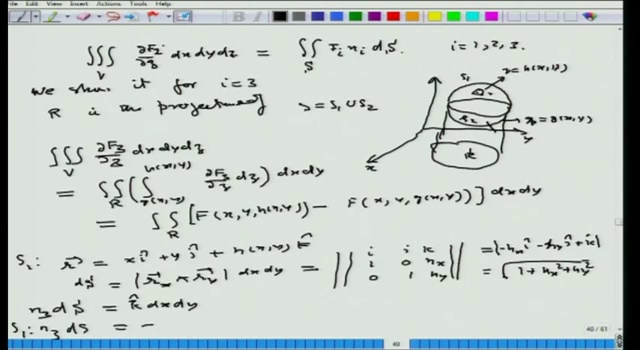 File Edit View Insert Actions Tools Help
∭_V ∂F_i/∂z dxdydz = ∬_S F_i n_i dS. i=1,2,3.
We show it for i=3
R is the projection of S = S_1 ∪ S_2
S_1 z=h(x,y)
S_2 z=g(x,y)
R
x y
∭_V ∂F_3/∂z dxdydz
= ∬_R (∫_{g(x,y)}^{h(x,y)} ∂F_3/∂z dz) dxdy
= ∬_R [F(x,y,h(x,y)) - F(x,y,g(x,y))] dxdy
S_1: r⃗ = x î + y ĵ + h(x,y) k̂
dS = |r⃗_x × r⃗_y| dxdy = || i j k ; 1 0 h_x ; 0 1 h_y || = |-h_x î - h_y ĵ + k̂| = √(1+h_x²+h_y²)
n_3 dS = k̂ dxdy
S_1: n_3 dS = -
40 / 61
40